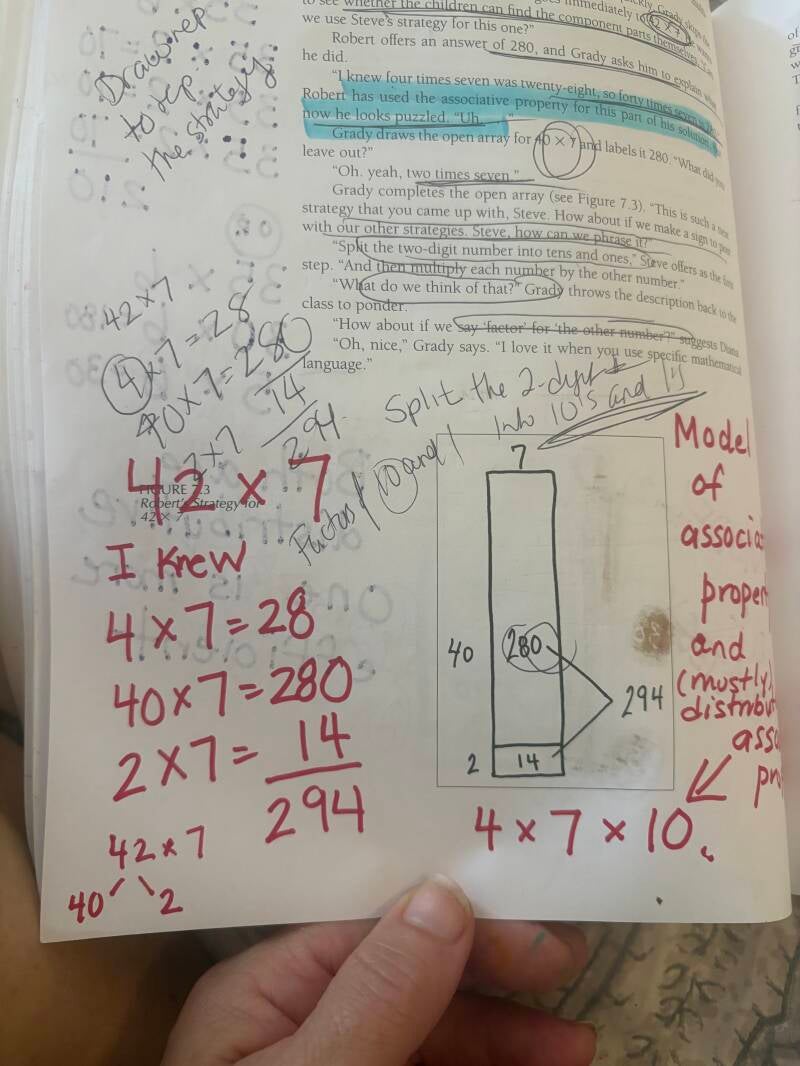 to see whether the children can find the component parts themselves.
we use Steve's strategy for this one?"
Robert offers an answer of 280, and Grady asks him to explain what
he did.
"I knew four times seven was twenty-eight, so forty times seven
Robert has used the associative property for this part of his solution,
now he looks puzzled. "Uh
Grady draws the open array for 40 × 7 and labels it 280. "What did you
leave out?"
"Oh. yeah, two times seven."
Grady completes the open array (see Figure 7.3). "This is such a new
strategy that you came up with, Steve. How about if we make a sign to post
with our other strategies. Steve, how can we phrase it?"
"Split the two-digit number into tens and ones," Steve offers as the first
step. "And then multiply each number by the other number."
"What do we think of that?" Grady throws the description back to the
class to ponder.
"How about if we say 'factor' for 'the other number?'" suggests Diana.
"Oh, nice," Grady says. "I love it when you use specific mathematical
language."
Draw rep
to rep
the strategy
42 × 7
4 × 7 = 28
40 × 7 = 280
2 × 7
14
294
Split the 2-digit
into 10's and 1's
Factors
10 and 1
FIGURE 7.3
Robert's Strategy for
42 × 7
42 × 7
I knew
4 × 7 = 28
40 × 7 = 280
2 × 7 = 14
294
42 × 7
40 2
7
40
280
294
2
14
Model
of
associa
proper
and
(mostly)
distribu
asso
pro
4 × 7 × 10